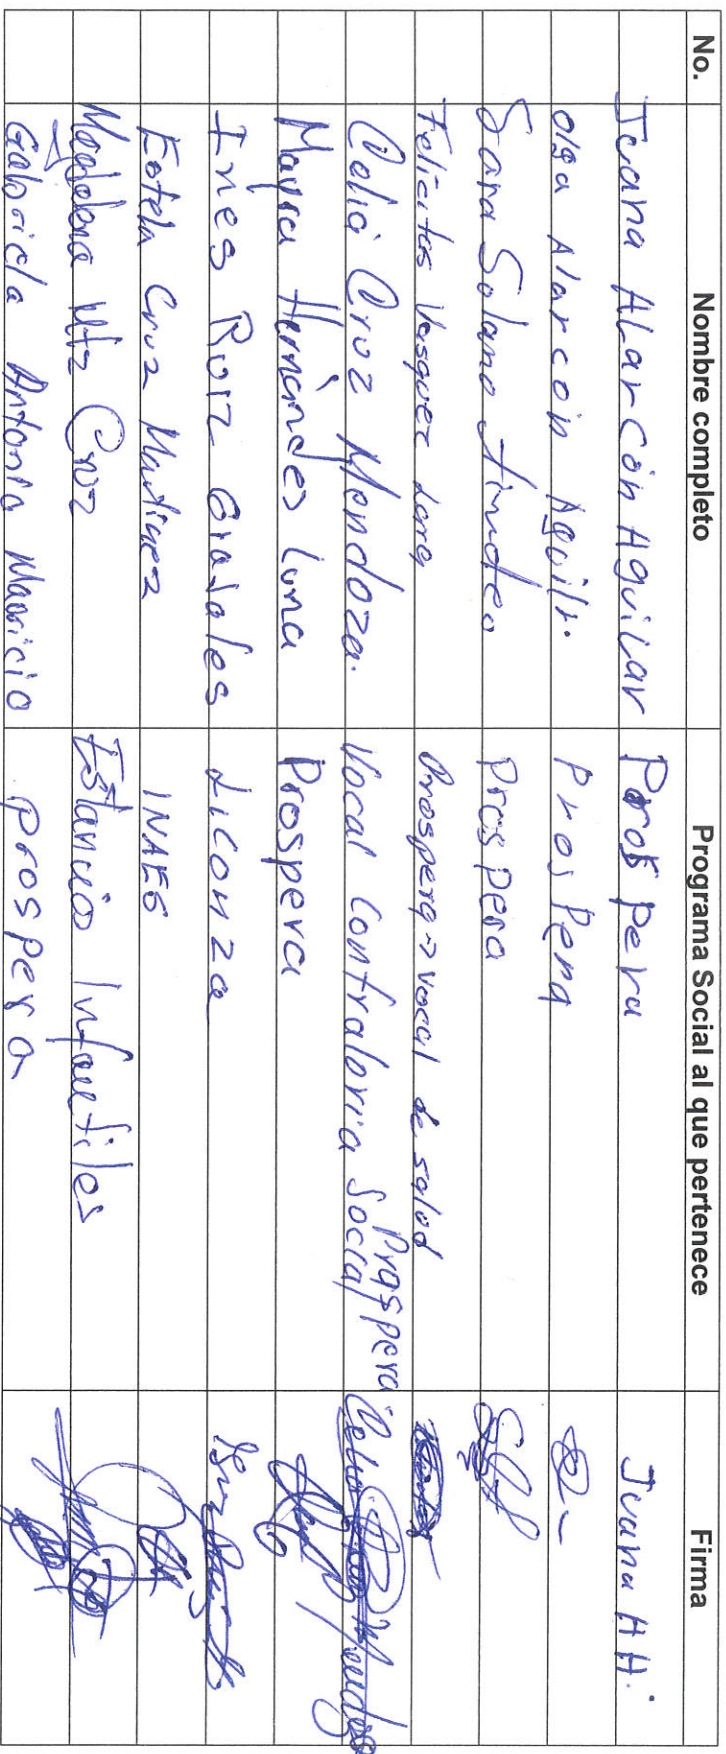 No. Nombre completo Programa Social al que pertenece Firma
Juana Alarcón Aguilar Prospera Juana AA.
Olga Alarcón Aguilr. Prospera
Sara Solano Timoteo Prospera
Felicitas Vasquez Prospera → vocal de salud
Celia Cruz Mendoza. Vocal Contraloria Social Prospera
Mayra Hernández Luna Prospera
Ines Ruiz Grajales Liconza
Estela Cruz Martinez INAES
Magdalena Mtz Cruz Estancias Infantiles
Gabriela Antonia Mauricio prospera